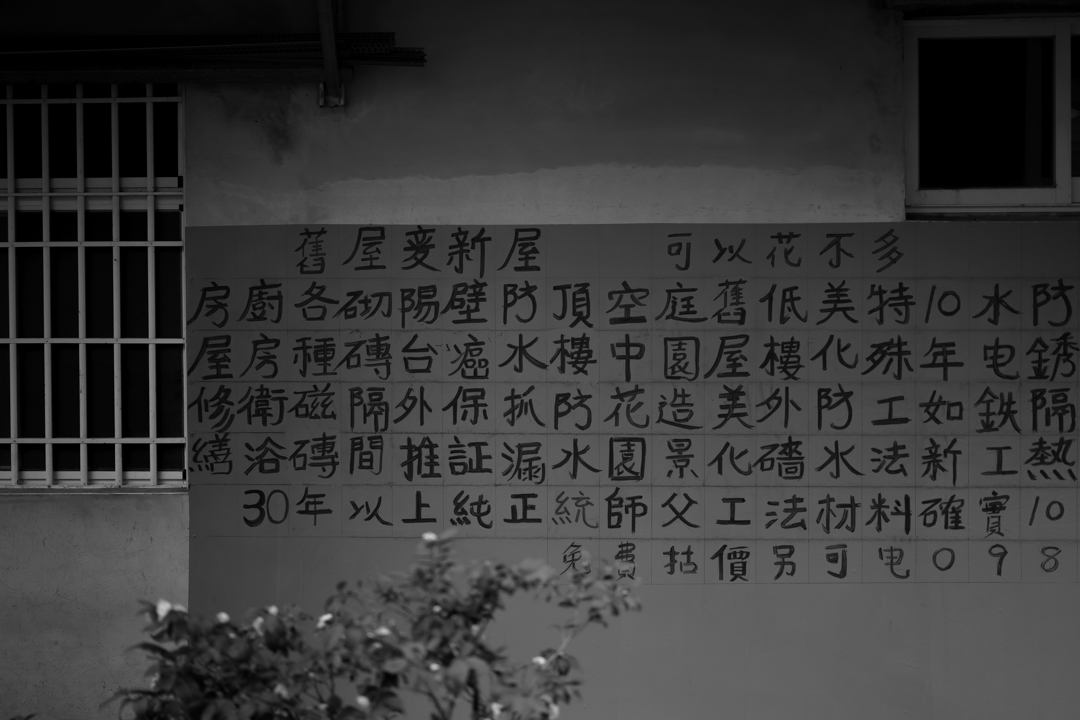 舊屋変新屋 可以花不多
房屋修繕
廚房衛浴
各種磁磚
砌磚隔間
陽台外推
壁癌保証
防水抓漏
頂樓防水
空中花園
庭園造景
舊屋美化
低樓外墻
美化防水
特殊工法
10年如新
水电鉄工
防銹隔熱
30年以上純正統師父工法材料確實10
免費估價另可电098